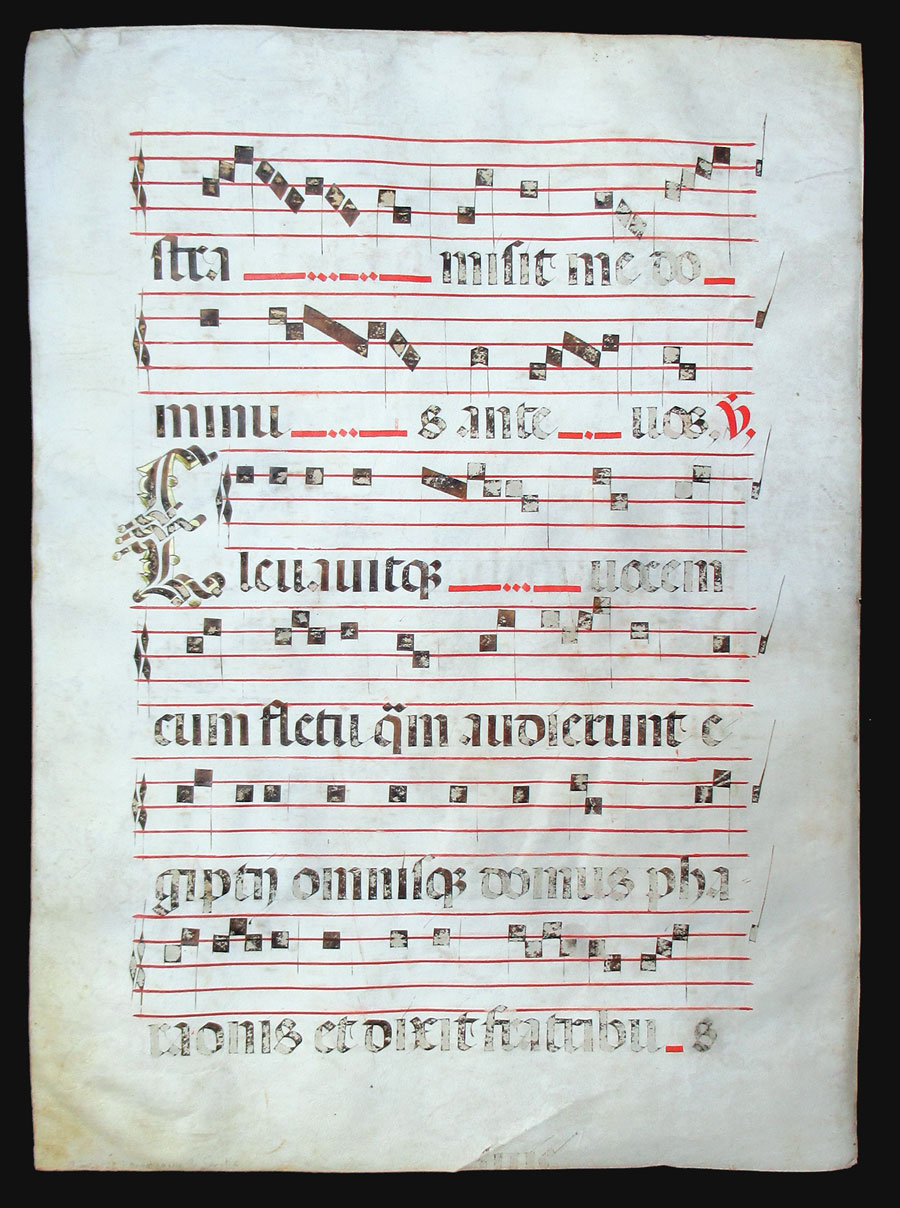 stra misit me do
minus ante uos. ℣.
Eleuauitqꝫ uocem
cum fletu q̃m audierunt e
giptij omnisqꝫ domus pha
raonis et dixit fratribus